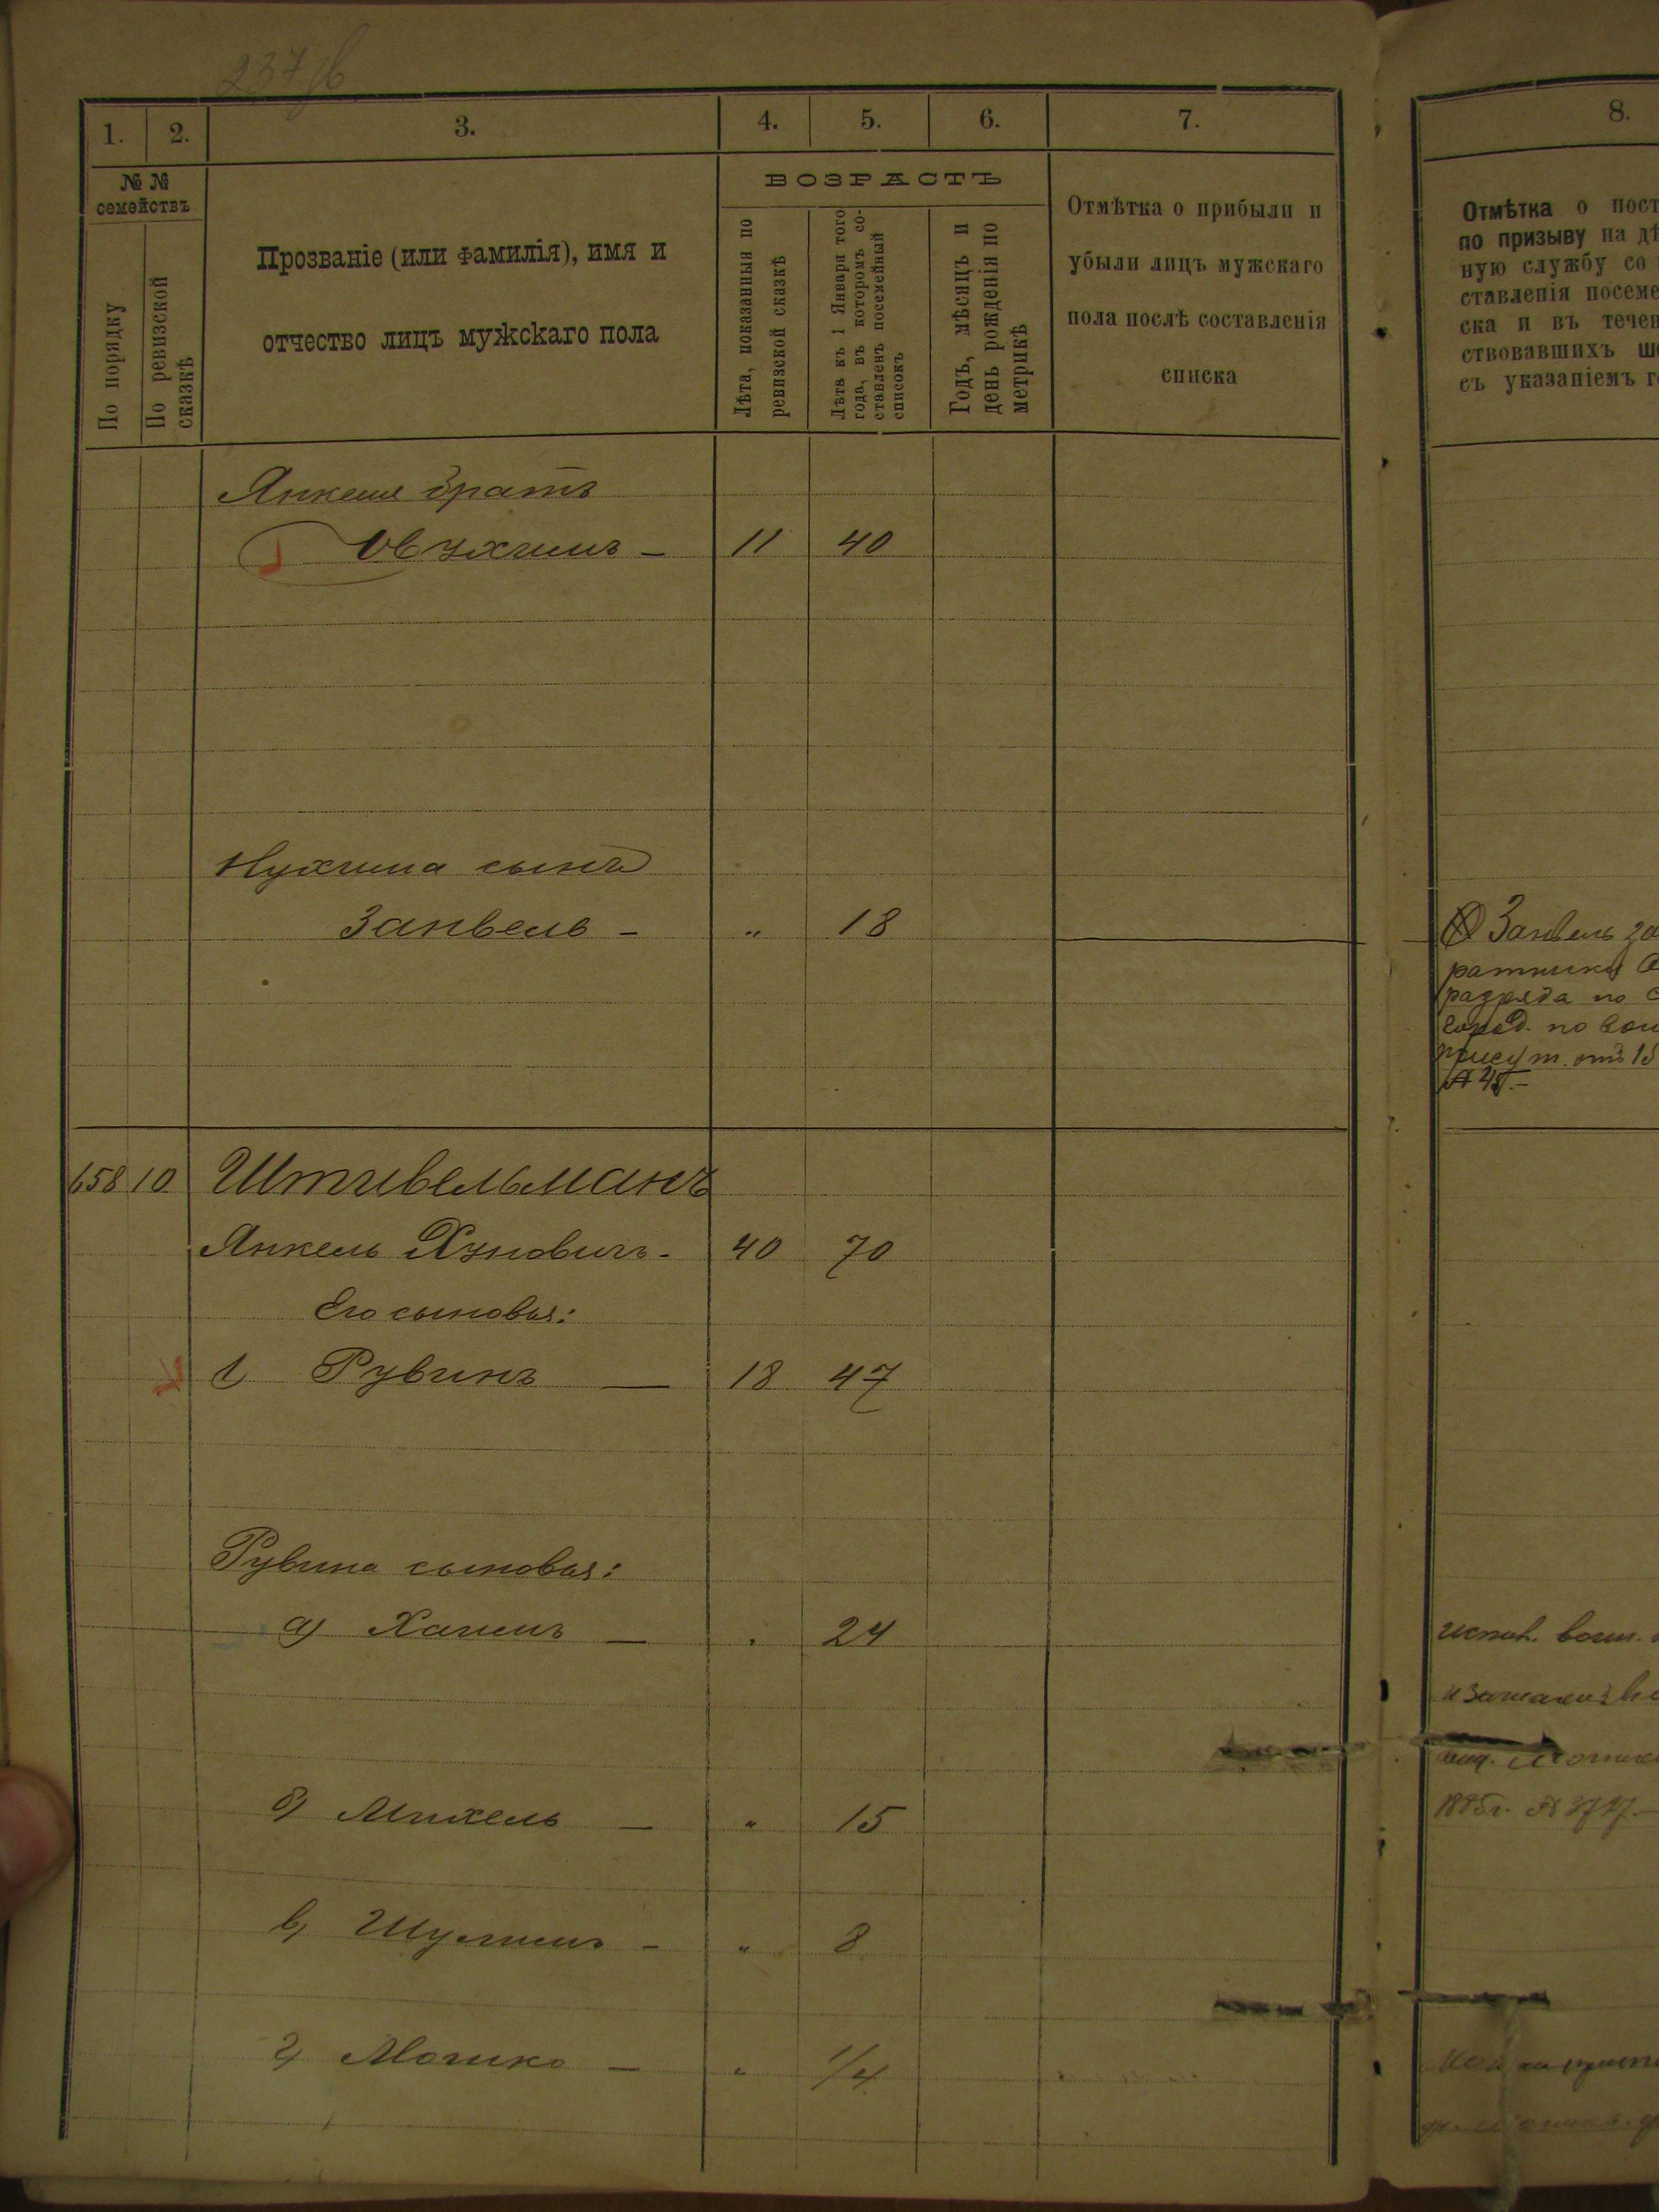 1. 2. 3. 4. 5. 6. 7.
№ №
семействъ
По порядку
По ревизской
сказкѣ
Прозваніе (или фамилія), имя и
отчество лицъ мужскаго пола
ВОЗРАСТЪ
Лѣта, показанныя по
ревизской сказкѣ
Лѣта къ 1 Января того
года, въ которомъ со-
ставленъ посемейный
списокъ
Годъ, мѣсяцъ и
день рожденія по
метрикѣ
Отмѣтка о прибыли и
убыли лицъ мужскаго
пола послѣ составленія
списка
Янкеля братъ
11 40
Нухима сынъ
Занвель - " 18
658 10 Штивельманъ
Янкель Хуновичъ - 40 70
Его сыновья:
1 Рувинъ — 18 47
Рувина сыновья:
а) Хаимъ — 24
б) Михель — " 15
в) Шулимъ - " 8
г) Мошко — " 1/4
8.
Отмѣтка о пост
по призыву на дѣ
ную службу со
ставленія посеме
ска и въ течен
ствовавшихъ ш
съ указаніемъ г
Занвель за
ратники
разряда по
по
присут. отъ 15
1885г. № 3717.—